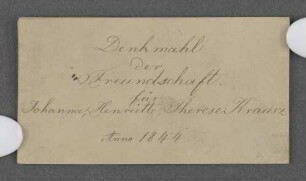 Denkmahl
der
Freundschaft.
für
Johanna, Henriette, Therese Krause
Anno 1844